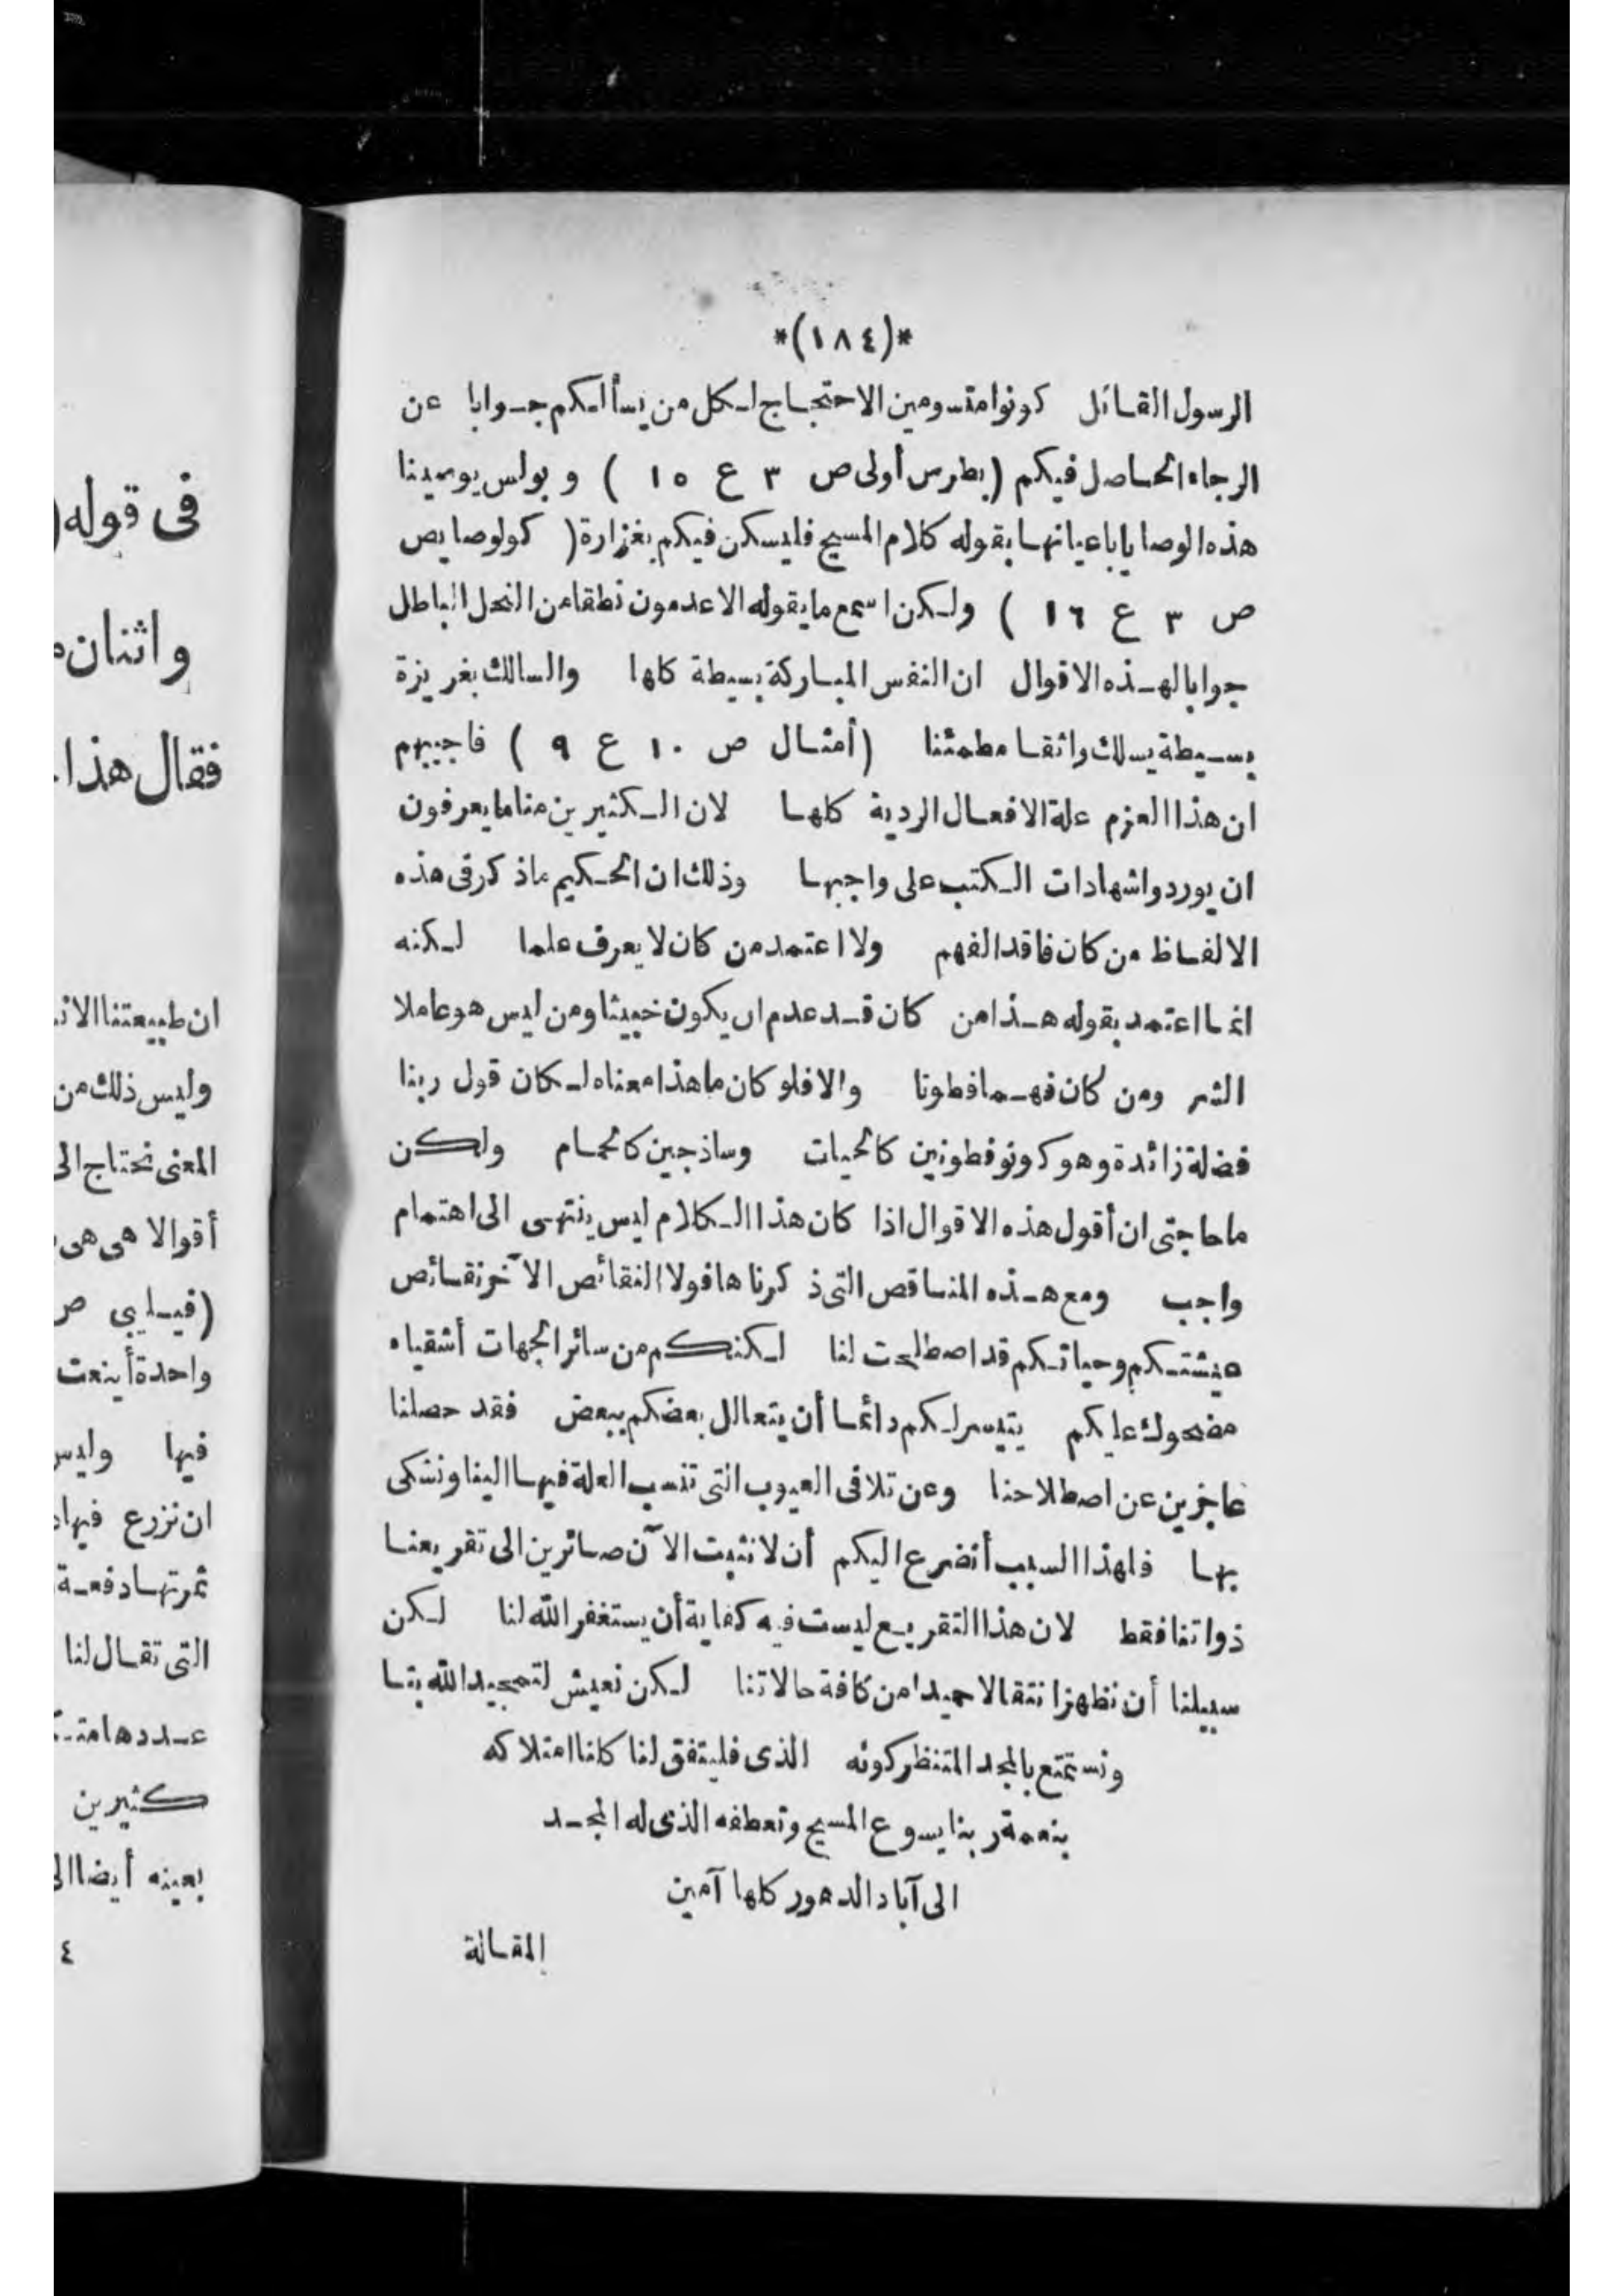 *(١٨٤)*
الرسول القائل كونوا متسومين الاحتجاج لكل من يسألكم جوابا عن
الرجاء الحاصل فيكم (بطرس أولى ص ٣ ع ١٥ ) وبولس يوصينا
هذه الوصايا باعيانها بقوله كلام المسيح فليسكن فيكم بغزارة ( كولوصايص
ص ٣ ع ١٦ ) ولكن اسمع ما يقوله الاعدمون نطقا من النحل الباطل
جوابا لهذه الاقوال ان النفس المباركة بسيطة كلها والسالك بغريزة
بسيطة يسلك واثقا مطمئنا (أمثال ص ١٠ ع ٩ ) فاجيبهم
ان هذا العزم علة الافعال الردية كلها لان الكثيرين منا ما يعرفون
ان يوردوا شهادات الكتب على واجبها وذلك ان الحكيم ماذكر فى هذه
الالفاظ من كان فاقد الفهم ولا اعتمد من كان لا يعرف علما لكنه
انما اعتمد بقوله هذا من كان قد عدم ان يكون خبيثا ومن ليس هو عاملا
الشر ومن كان فهما فطونا والا فلو كان ما هذا معناه لكان قول ربنا
فضلة زائدة وهو كونو فطونين كالحيات وساذجين كالحمام ولكن
ما حاجتى ان أقول هذه الاقوال اذا كان هذا الكلام ليس ينتهى الى اهتمام
واجب ومع هذه المناقص التى ذكرناها فولا النقائص الآخر نقائص
عيشتكم وحياتكم قد اصطلحت لنا لكنكم من سائر الجهات أشقياء
مضحوك عليكم يتيسر لكم دائما أن يتعالل بعضكم ببعض فقد حصلنا
عاجزين عن اصطلاحنا وعن تلافى العيوب التى تنسب العلة فيها الينا ونشكى
بها فلهذا السبب أتضرع اليكم أن لا نثبت الآن صائرين الى تقريعنا
ذواتنا فقط لان هذا التقريع ليست فيه كفاية أن يستغفر الله لنا لكن
سبيلنا أن نظهر انتقالا حميدا من كافة حالاتنا لكن نعيش لتمجيد الله بتا
ونستمتع بالمجد المتنظر كونه الذى فليتفق لنا كلنا امتلاكه
بنعمة ربنا يسوع المسيح وتعطفه الذى له المجد
الى آباد الدهور كلها آمين
المقالة
فى قوله(
واثنان
فقال هذا
ان طبيعتنا
وليس ذلك من
المعنى نحتاج الى
أقوالا هى هى
(فيليبى ص
واحدة أينعت
فيها وليس
ان نزرع فيها
ثمرتها دفعة
التى تقال لنا
عددها
كثيرين
بعينه أيضا
٤